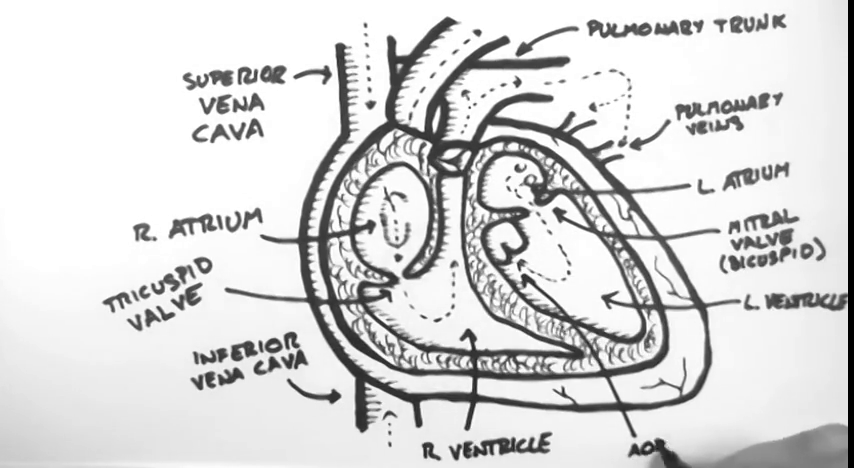 PULMONARY TRUNK
SUPERIOR
VENA
CAVA
PULMONARY
VEINS
L. ATRIUM
R. ATRIUM
MITRAL
VALVE
(BICUSPID)
TRICUSPID
VALVE
L. VENTRICLE
INFERIOR
VENA CAVA
R. VENTRICLE
AOR